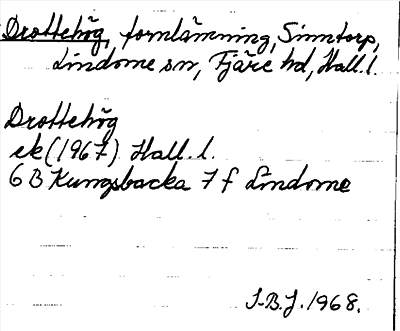 Drottehög, fornlämning, Sinntorp,
Lindome sn, Fjäre hd, Hall.l.
Drottehög
ek (1967) Hall.l.
6 B Kungsbacka 7 f Lindome
I.B.J. 1968.